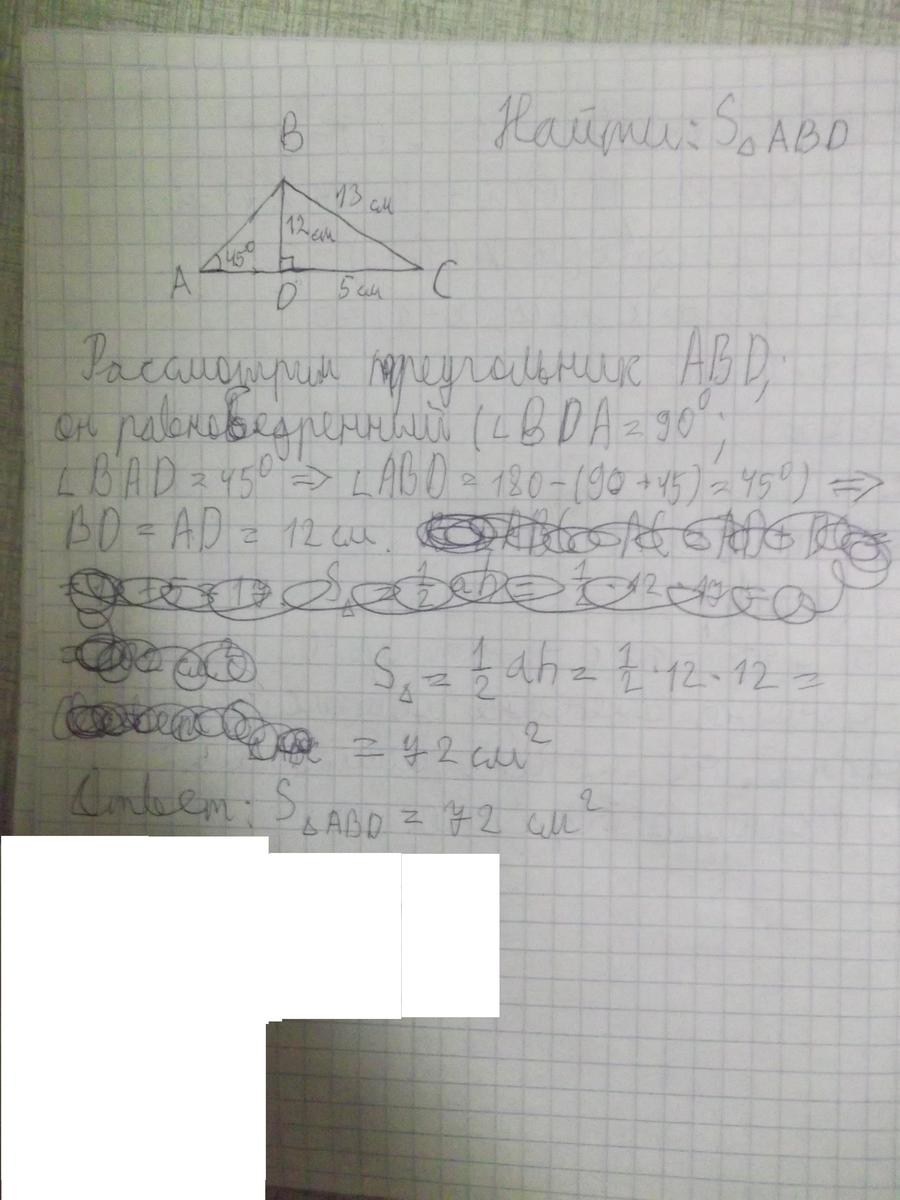 Найти: S△ABD
B
13 см
12 см
45°
A
D
5 см
C
Рассмотрим треугольник ABD;
он равнобедренный (∠BDA = 90°;
∠BAD = 45° => ∠ABD = 180 - (90 + 45) = 45°) =>
BD = AD = 12 см.
S△ = 1/2 ah = 1/2 · 12 · 12 =
= 72 см²
Ответ: S△ABD = 72 см²